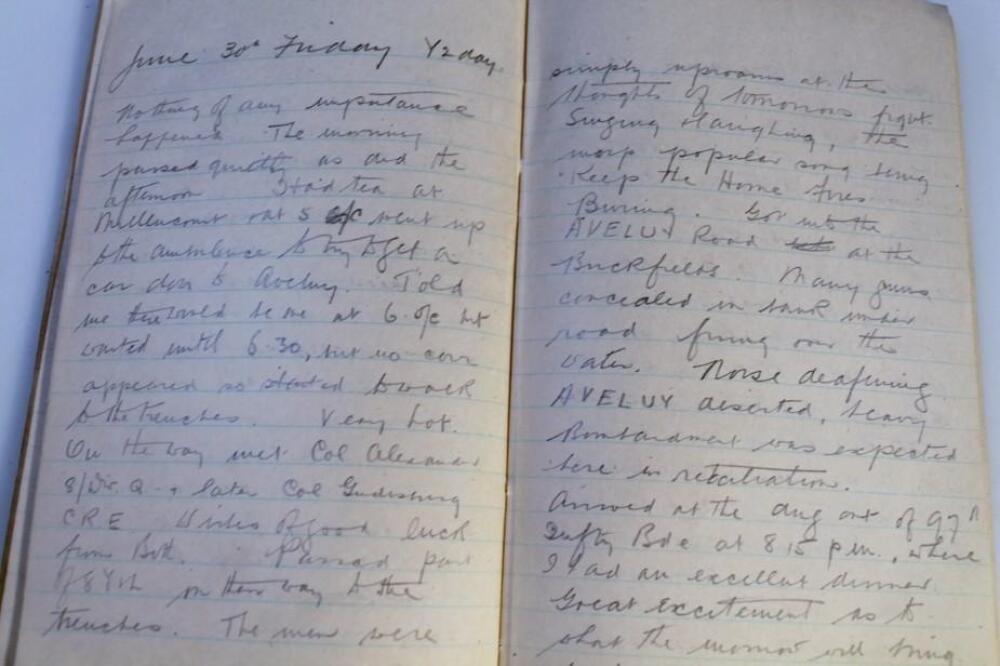 June 30th Friday Y2 day.
Nothing of any importance
happened The morning
passed quietly as did the
afternoon I had tea at
Millencourt & at 5 o/c went up
to the ambulance to try to get a
car down to Aveluy. Told
me there would be one at 6 o/c but
waited until 6.30, but no car
appeared so started to walk
to the trenches. Very hot.
On the way met Col Alexander
8/Div. Q & later Col
CRE Wishes of good luck
from Both. Passed part
of 8 on their way to the
trenches. The men were
simply uproarious at the
thoughts of tomorrows fight.
Singing & laughing, the
most popular song being
"Keep the Home Fires
Burning. Got into the
AVELUY Road at the
Brickfields. Many guns
concealed in bank under
road firing over the
water. Noise deafening
AVELUY deserted, heavy
Bombardment was expected
here in retaliation.
Arrived at the dug out of 97th
Infty Bde at 8.15 p.m., where
I had an excellent dinner
Great Excitement as to
what the morrow will bring